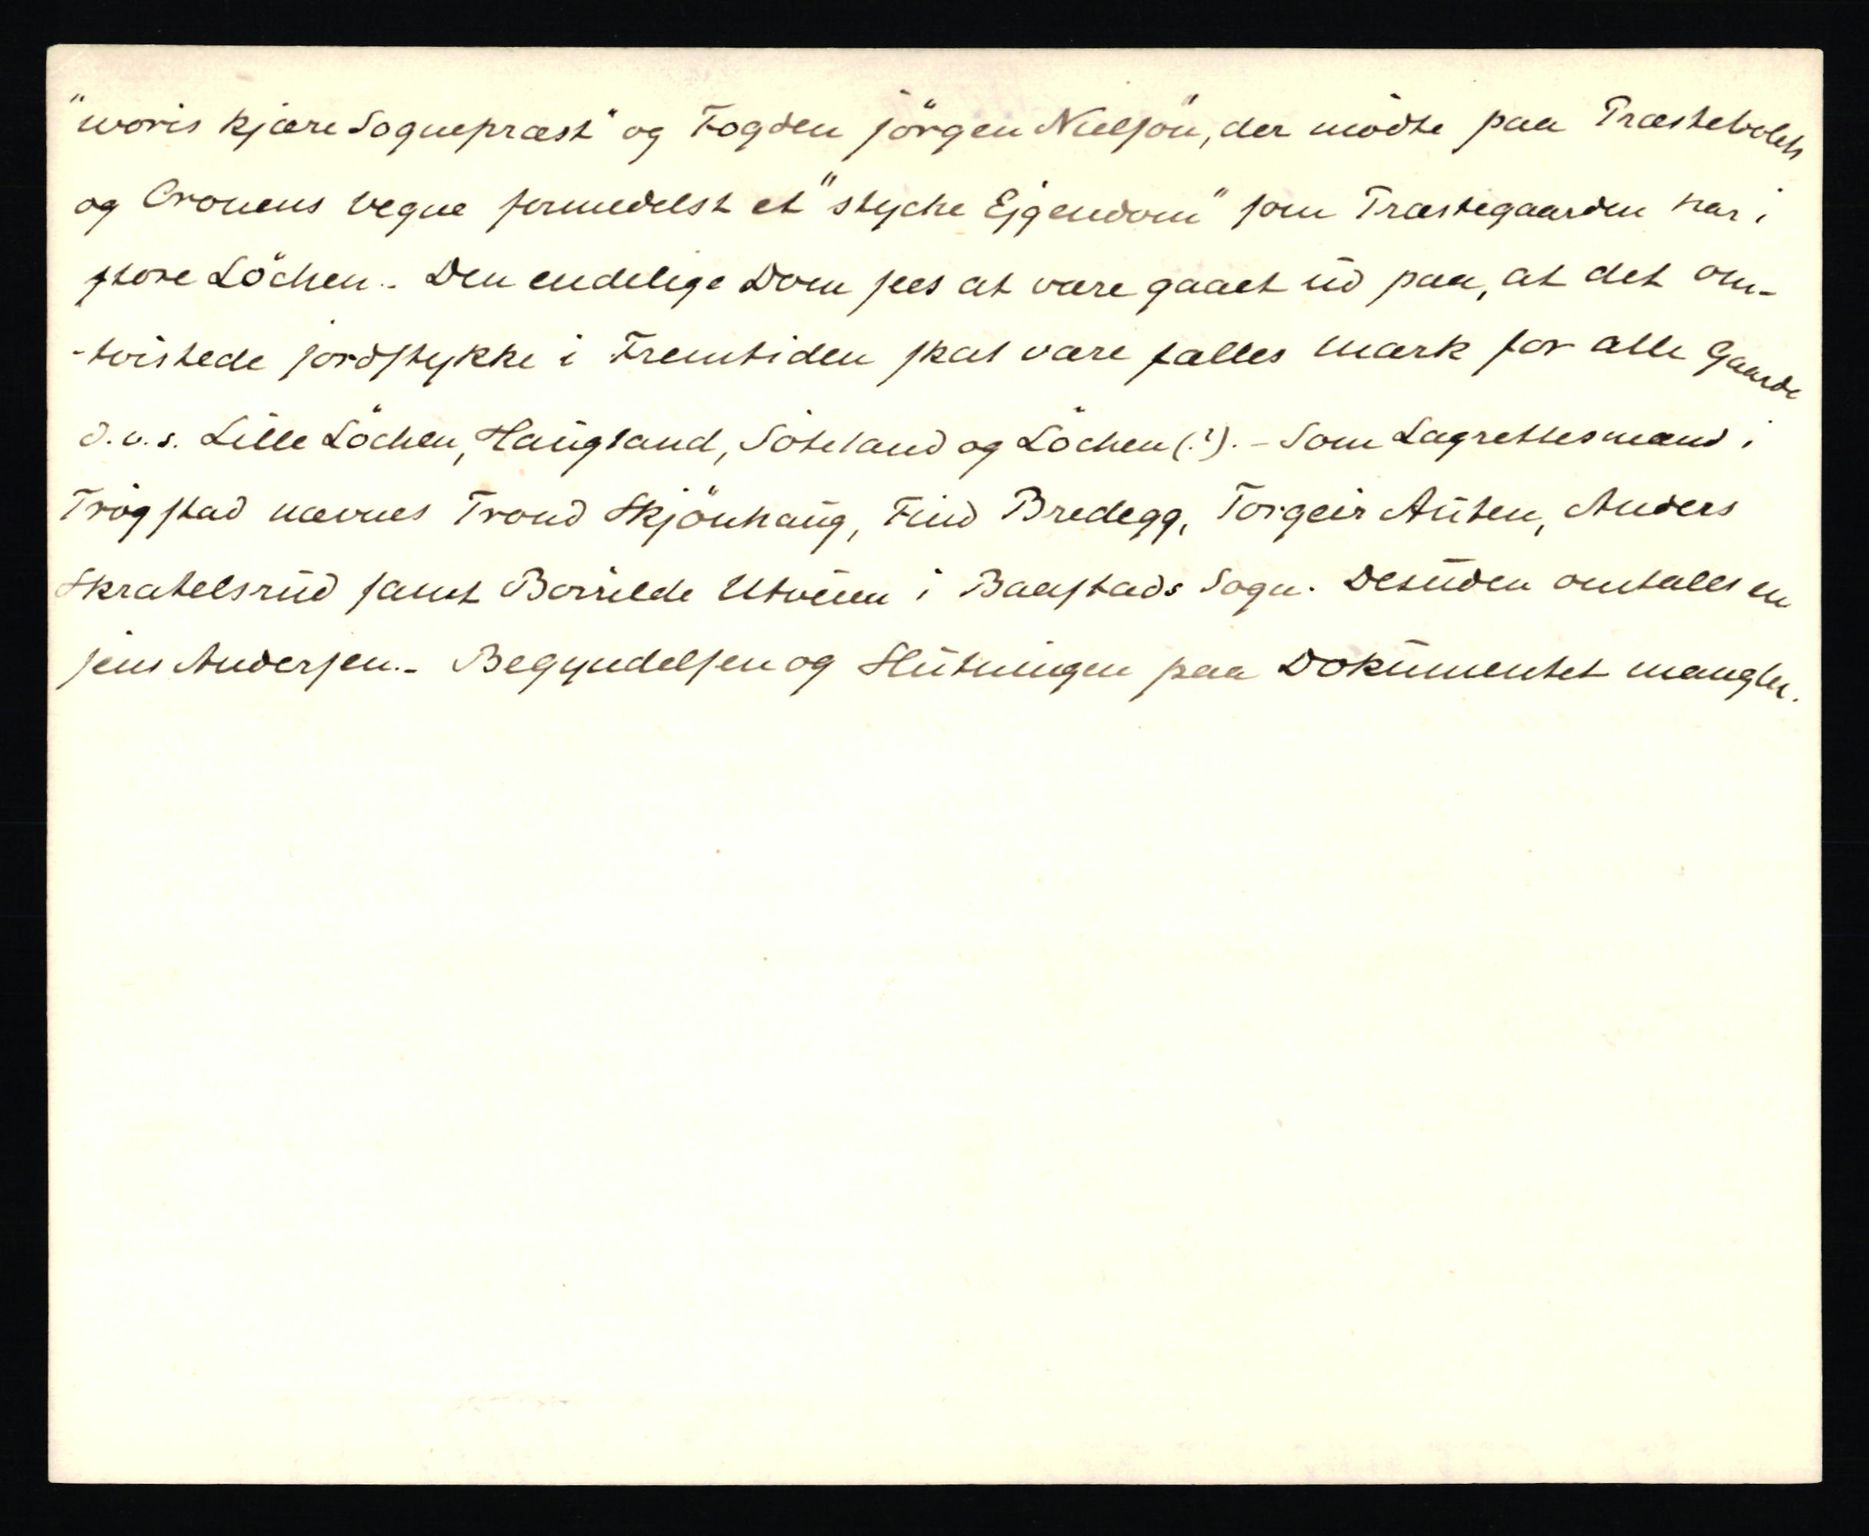 "woris kjære Sognepræst" og Fogden Jörgen Nielsön, der mødte paa Præstebolets
og Cronens vegne formedelst et "stycke Ejgendom" som Præstegaarden har i
store Löchen. - Den endelige Dom sees at være gaaet ud paa, at det om-
-tvistede Jordstykke i Fremtiden skal være fælles Mark for alle Gaarde
d.v.s. Lille Löchen, Haugland, Soteland og Löchen (:?). - Som Lagrettesmænd i
Trøgstad nævnes Trond Skjönhaug, Find Bredegg, Torgeir Auten, Anders
Skratelsrud samt Borrilde Utveien i Baastads Sogn. Desuden omtales en
Jens Andersen. - Begyndelsen og Slutningen paa Dokumentet mangler.